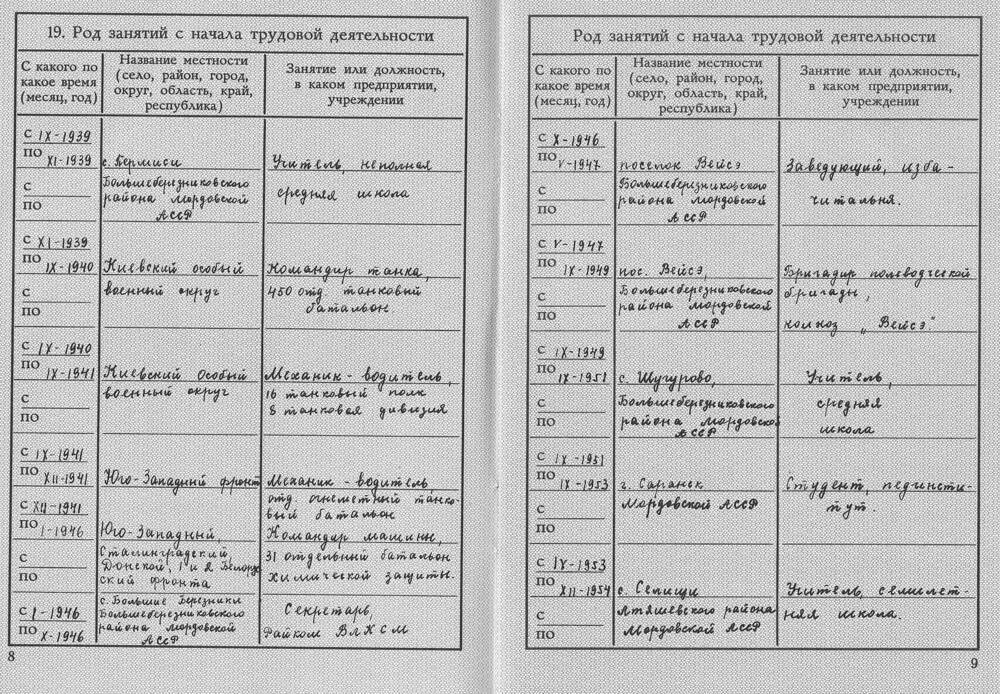 19. Род занятий с начала трудовой деятельности
С какого по какое время (месяц, год)
Название местности (село, район, город, округ, область, край, республика)
Занятие или должность, в каком предприятии, учреждении
С IX-1939
ПО XI-1939
с. Пермиси
Учитель, неполная
С
Большеберезниковского
средняя школа
ПО
района Мордовской
АССР
С XI-1939
ПО IX-1940
Киевский особый
Командир танка,
С
военный округ
450 отд. танковый
ПО
батальон
С IX-1940
ПО IX-1941
Киевский Особый
Механик-водитель,
С
военный округ
16 танковый полк
ПО
8 танковая дивизия
С IX-1941
ПО XII-1941
Юго-Западный фронт
Механик-водитель
отд. огнеметный танко-
С XII-1941
вый батальон
ПО I-1946
Юго-Западный,
Командир машины,
С
Сталинградский,
31 отдельный батальон
ПО
Донской, 1 и 2 Белорус
химической защиты.
ский фронта
с. Большие Березники
С I-1946
Большеберезниковского
Секретарь,
ПО X-1946
района Мордовской
Райком ВЛКСМ
АССР
8
Род занятий с начала трудовой деятельности
С какого по какое время (месяц, год)
Название местности (село, район, город, округ, область, край, республика)
Занятие или должность, в каком предприятии, учреждении
С X-1946
ПО V-1947
поселок Вейсэ
Заведующий, изба-
С
Большеберезниковского
читальня.
ПО
района Мордовской
АССР
С V-1947
ПО IX-1949
пос. Вейсэ,
Бригадир полеводческой
С
Большеберезниковского
бригады,
ПО
района Мордовской
АССР
колхоз „Вейсэ"
С IX-1949
ПО IX-1951
с. Шугурово,
Учитель,
С
Большеберезниковского
средняя
ПО
района Мордовской
школа
АССР
С IX-1951
ПО IX-1953
г. Саранск
Студент, пединсти-
С
Мордовской АССР
тут.
ПО
С IX-1953
ПО XII-1954
с. Селищи
Учитель, семилет-
С
Атяшевского района
няя школа.
ПО
Мордовской АССР
9